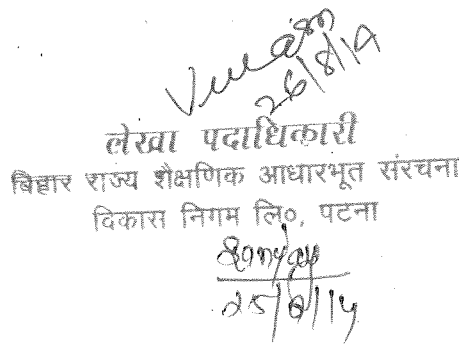 26/8/14
लेखा पदाधिकारी
बिहार राज्य शैक्षणिक आधारभूत संरचना
विकास निगम लि०, पटना
25/8/14